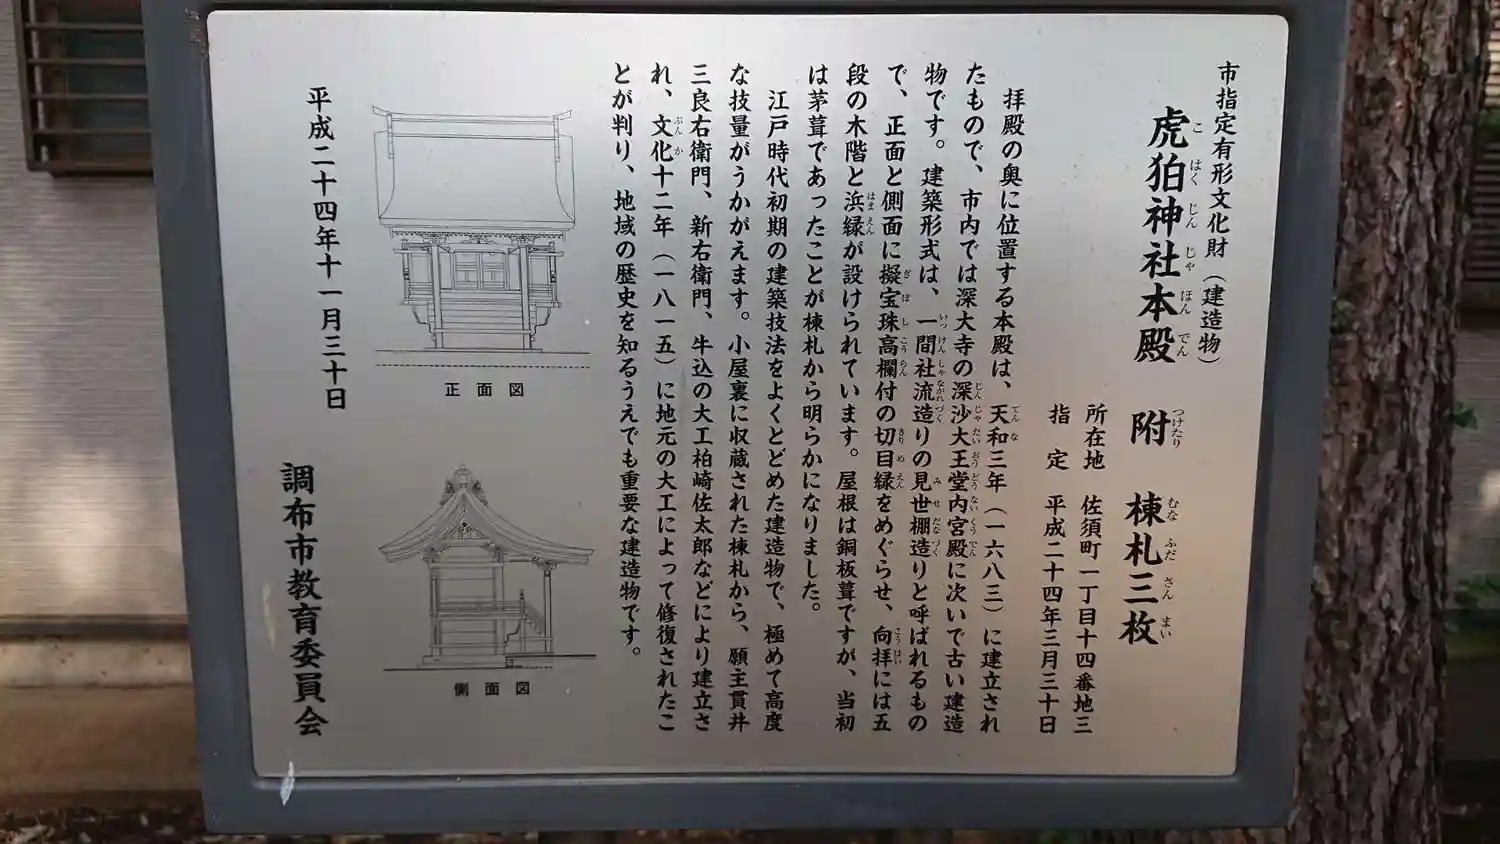 市指定有形文化財（建造物）
虎狛神社本殿　附　棟札三枚
こはくじんじゃほんでん　つけたり　むなふださんまい
所在地　佐須町一丁目十四番地三
指　定　平成二十四年三月三十日
拝殿の奥に位置する本殿は、天和三年（一六八三）に建立され
たもので、市内では深大寺の深沙大王堂内宮殿に次いで古い建造
物です。建築形式は、一間社流造りの見世棚造りと呼ばれるもの
で、正面と側面に擬宝珠高欄付の切目縁をめぐらせ、向拝には五
段の木階と浜縁が設けられています。屋根は銅板葺ですが、当初
は茅葺であったことが棟札から明らかになりました。
江戸時代初期の建築技法をよくとどめた建造物で、極めて高度
な技量がうかがえます。小屋裏に収蔵された棟札から、願主貫井
三良右衛門、新右衛門、牛込の大工柏崎佐太郎などにより建立さ
れ、文化十二年（一八一五）に地元の大工によって修復されたこ
とが判り、地域の歴史を知るうえでも重要な建造物です。
正面図
側面図
平成二十四年十一月三十日
調布市教育委員会